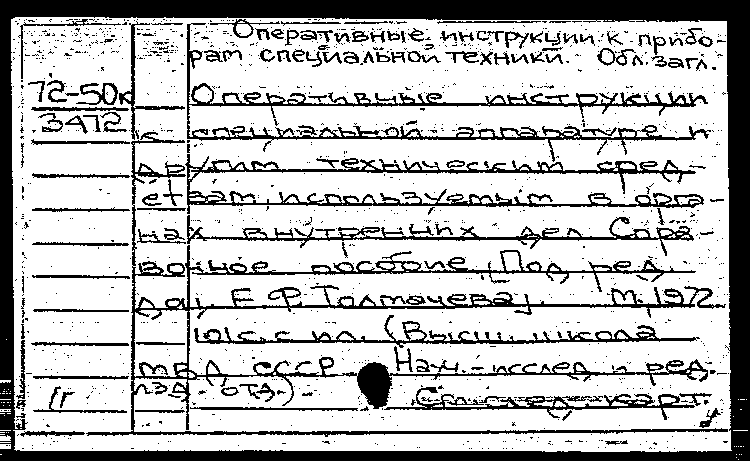 Оперативные инструкции к прибо-
рам специальной техники. Обл. загл.
72-50к Оперативные инструкции
3472 к специальной аппаратуре и
другим техническим сред-
ствам, используемым в орга-
нах внутренних дел Спра-
вочное пособие, [Под ред.
Е. Ф. Толмачева]. М., 1972
101 с. с ил. (Высш. школа
МВД СССР. Науч.-исслед. и ред.-
изд. отд.).
См. след. карт.